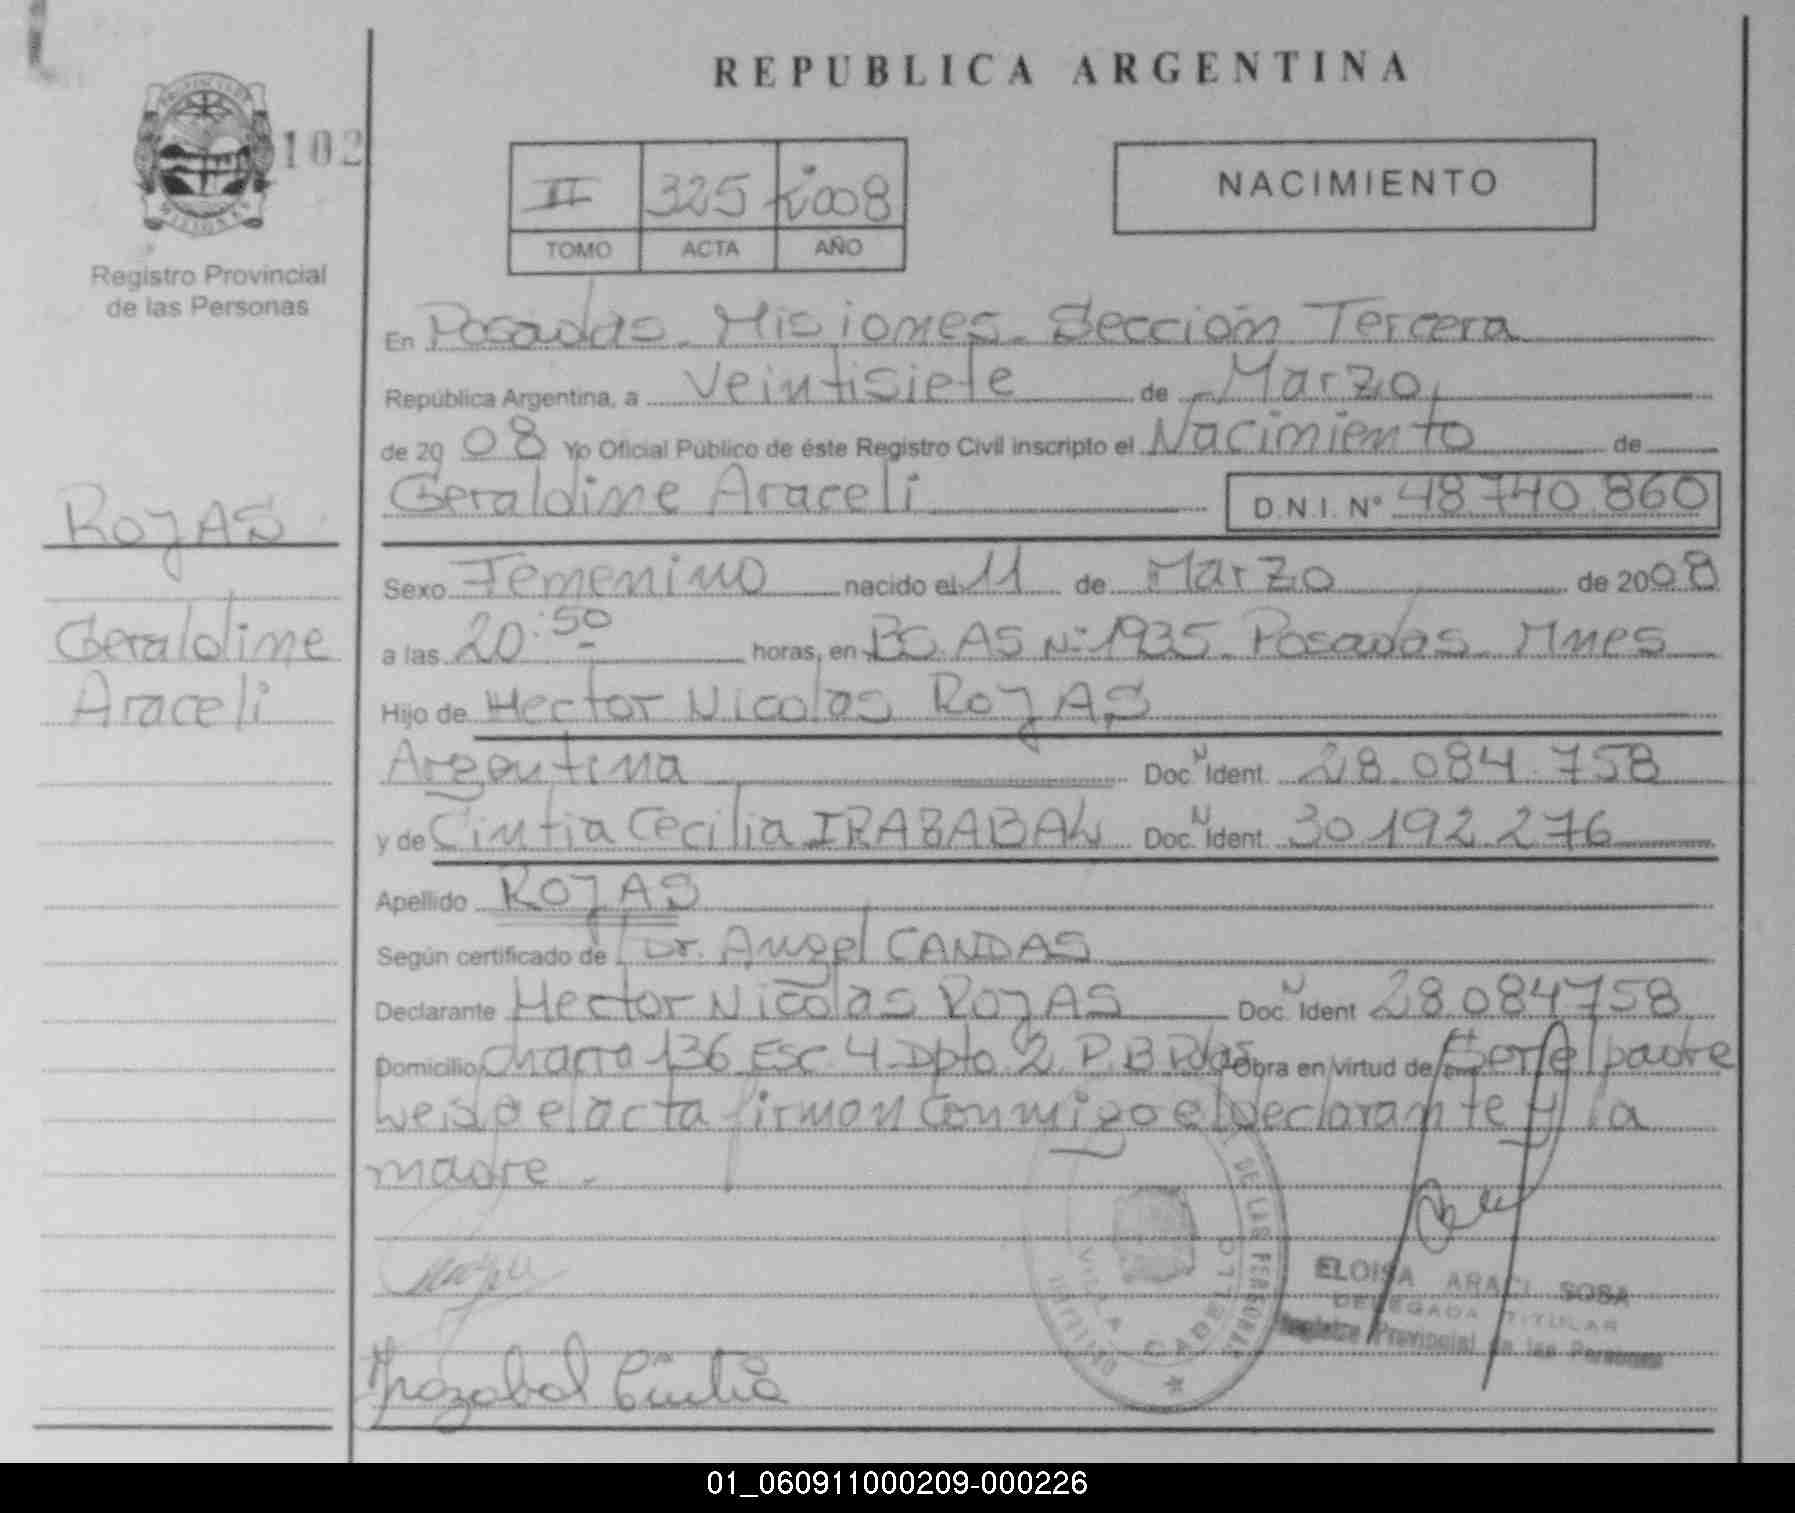 REPUBLICA ARGENTINA
PROVINCIA DE
MISIONES
102
Registro Provincial
de las Personas
II 325 2008
TOMO ACTA AÑO
NACIMIENTO
En Posadas. Misiones. Sección Tercera
República Argentina, a Veintisiete de Marzo
de 2008 Yo Oficial Público de éste Registro Civil inscripto el Nacimiento de
Geraldine Araceli D.N.I. Nº 48.740.860
ROJAS
Geraldine
Araceli
Sexo Femenino nacido el 11 de Marzo de 2008
a las 20:50 horas, en BS.AS Nº 1935. Posadas. Mnes
Hijo de Hector Nicolas ROJAS
Argentina Doc. N Ident. 28.084.758
y de Cintia Cecilia IRAZABAL Doc. N Ident. 30.192.276
Apellido ROJAS
Según certificado de Dr. Angel CANDAS
Declarante Hector Nicolas ROJAS Doc. N Ident 28.084758
Domicilio Chacra 136 ESC. 4 Dpto. 2 P.B Pdas Obra en virtud de Ser el padre
Leida el acta firman conmigo el declarante y la
madre.
DE LAS PERSONAS
VILLA CABELLO
ELOISA ARACI SOSA
DELEGADA TITULAR
Registro Provincial de las Personas
Irazabal Cintia
01_060911000209-000226